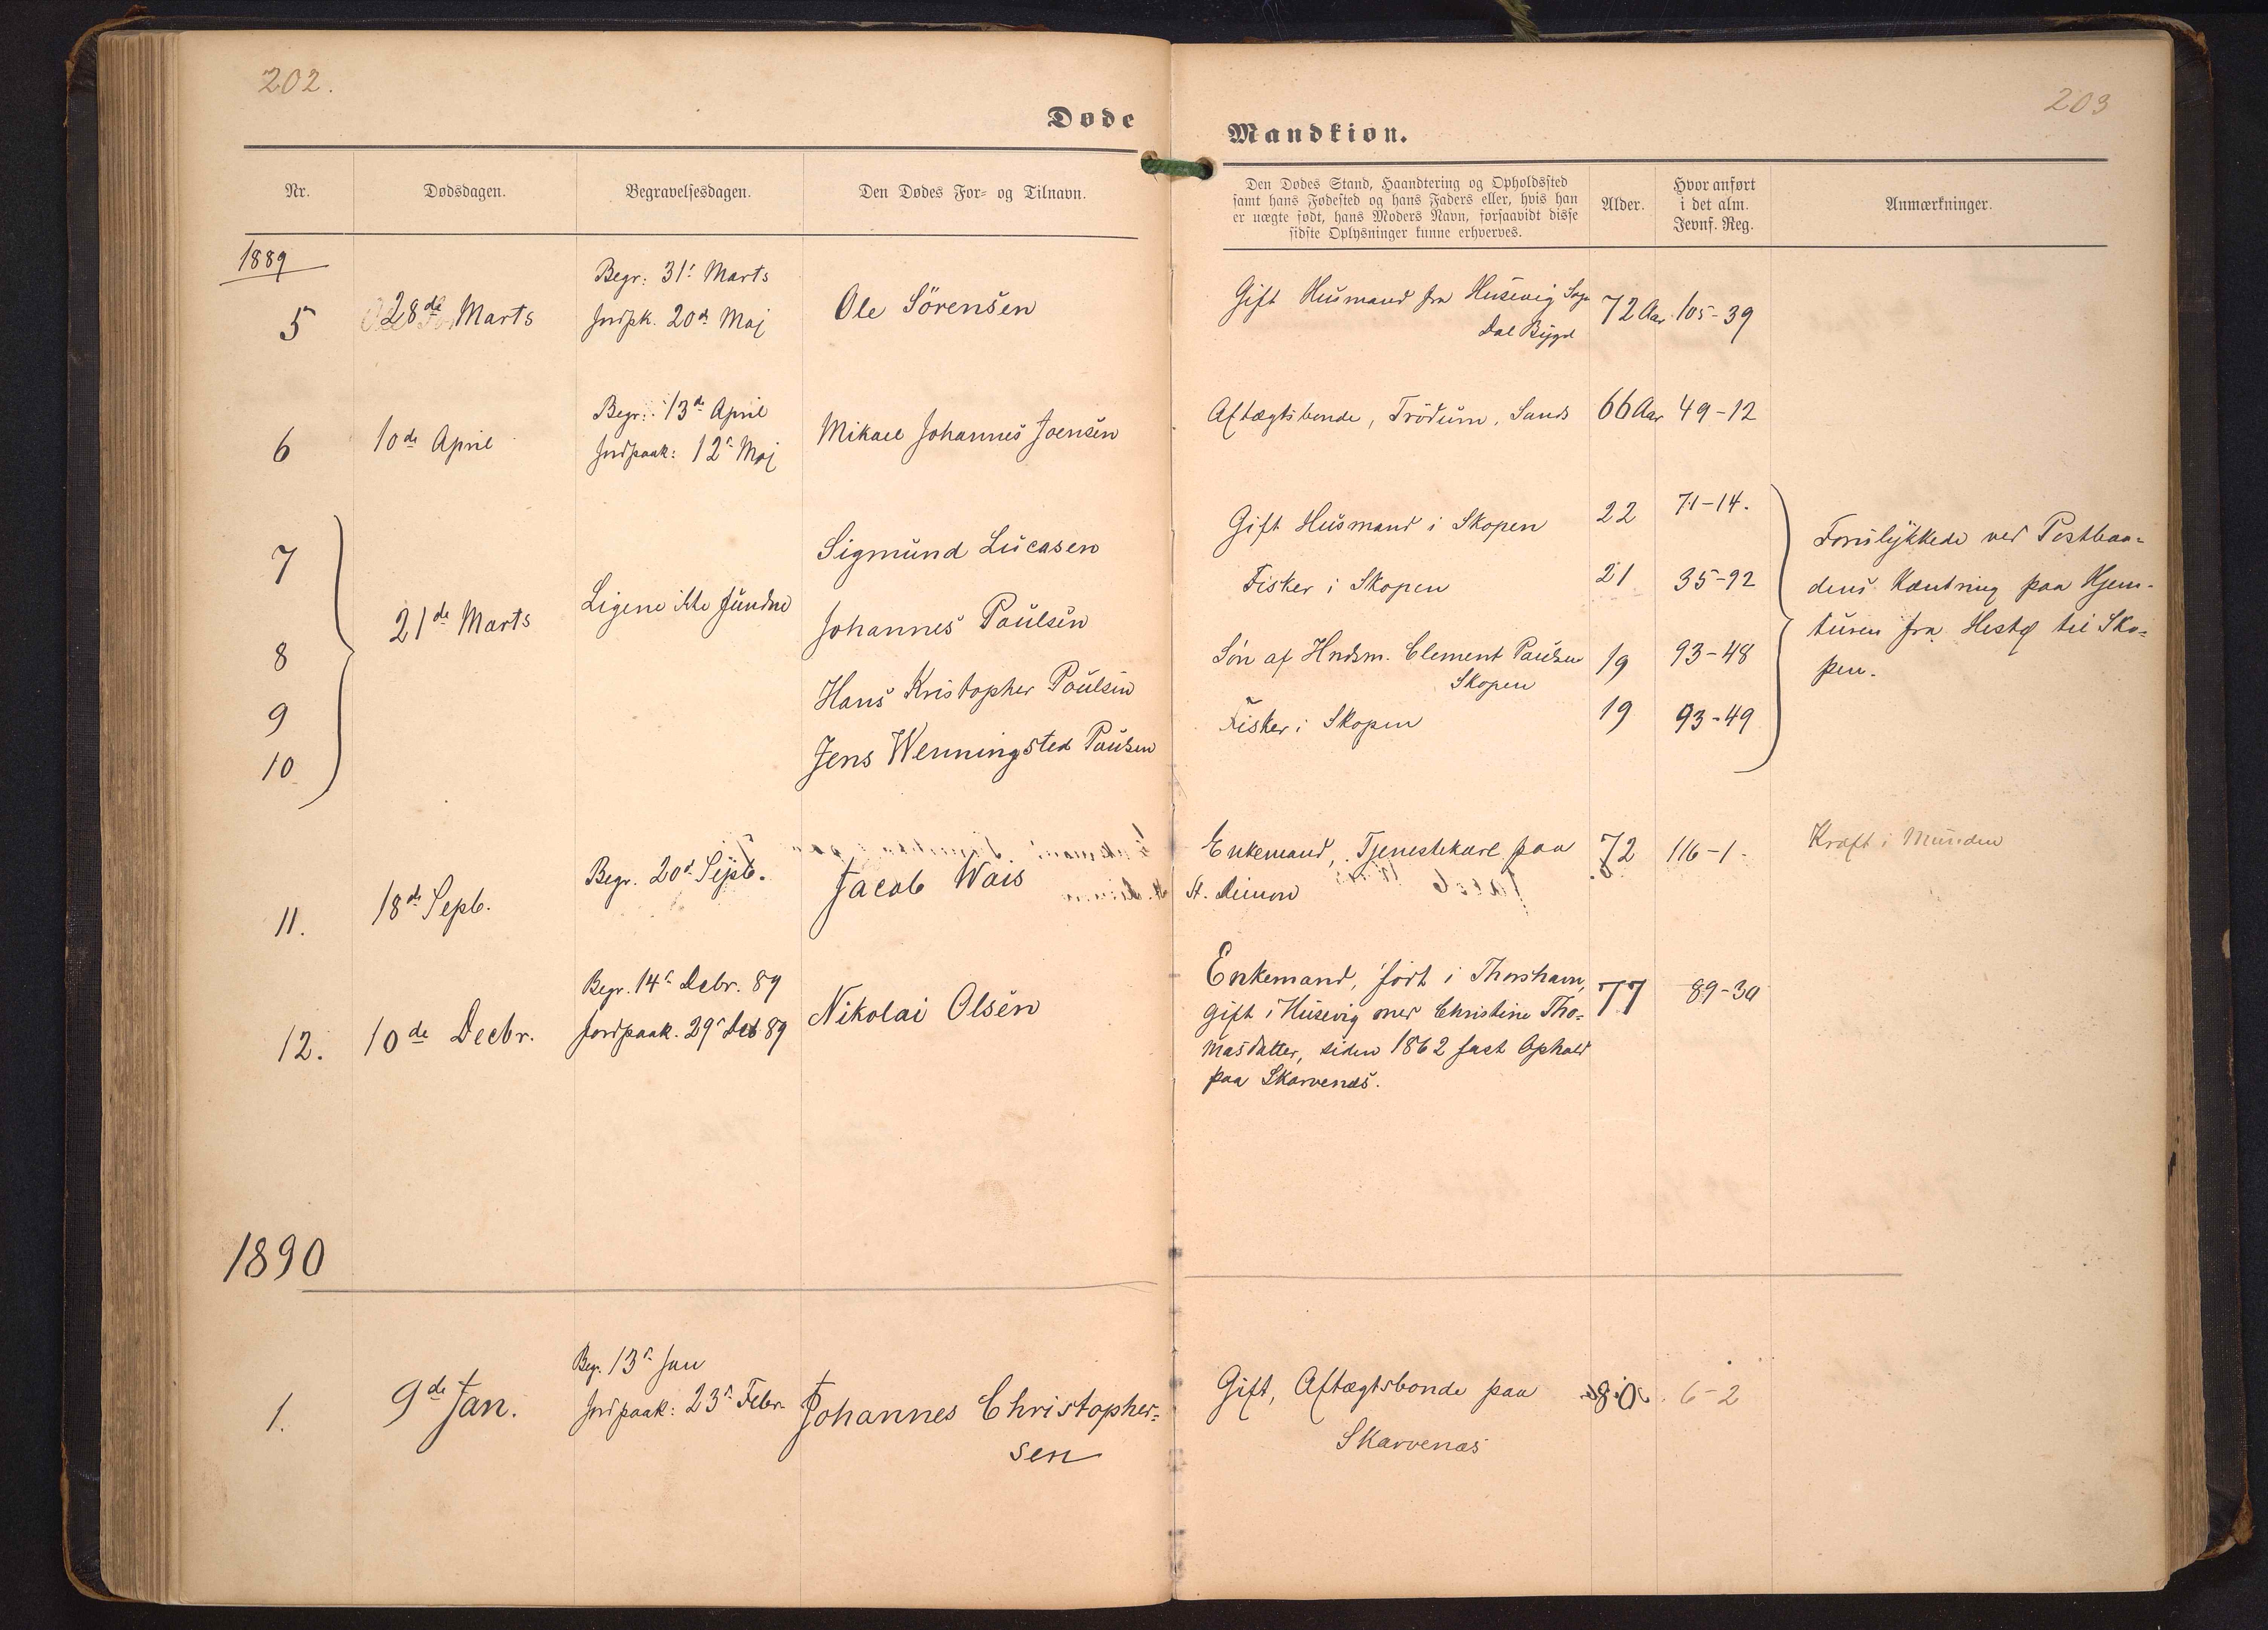 202.
203
Døde
Mandkiøn.
Nr.
Dødsdagen.
Begravelsesdagen.
Den Dødes For- og Tilnavn.
Den Dødes Stand, Haandtering og Opholdssted
samt hans Fødested og hans Faders eller, hvis han
er uægte født, hans Moders Navn, forsaavidt disse
sidste Oplysninger kunne erhverves.
Alder.
Hvor anført
i det alm.
Jevnf. Reg.
Anmærkninger.
1889
5
28de Marts
Begr: 31te Marts
Jordpk. 20de Maj
Ole Sörensen
Gift Husmand fra Husevig Sogn
Dal Bygd
72 Aar
105-39
6
10de April
Begr: 13de April
Jordpaak: 12te Maj
Mikael Johannes Joensen
Aftægtsbonde, Trödum, Sands
66 Aar
49-12
7
8
9
10
21de Marts
Ligene ikke fundne
Sigmund Lucasen
Johannes Paulsen
Hans Kristopher Poulsen
Jens Wenningsted Paulsen
Gift Husmand i Skopen
22
71-14.
Fisker i Skopen
21
35-92
Søn af Hndsm. Clement Paulsen
Skopen
19
93-48
Fisker i Skopen
19
93-49
Forulykkede ved Postbaa=
dens Kæntring paa Hjem-
turen fra Hestø til Sko=
pen.
11.
18de Septb.
Begr. 20de Septb.
Jacob Wais
Enkemand, Tjenestekarl paa
St. Dimon
72
116-1-
Kræft i Munden
12.
10de Decbr.
Begr. 14de Debr. 89
Jordpaak. 29de Deb 89
Nikolai Olsen
Enkemand, født i Thorshavn,
gift i Husevig med Christine Tho=
masdatter, siden 1862 fast Ophold
paa Skarvenæs.
77
89-30
1890
1.
9de Jan.
Begr. 13de Jan
Jordpaak: 23de Febr.
Johannes Christopher=
sen
Gift, Aftægtsbonde paa
Skarvenæs
80
6-2